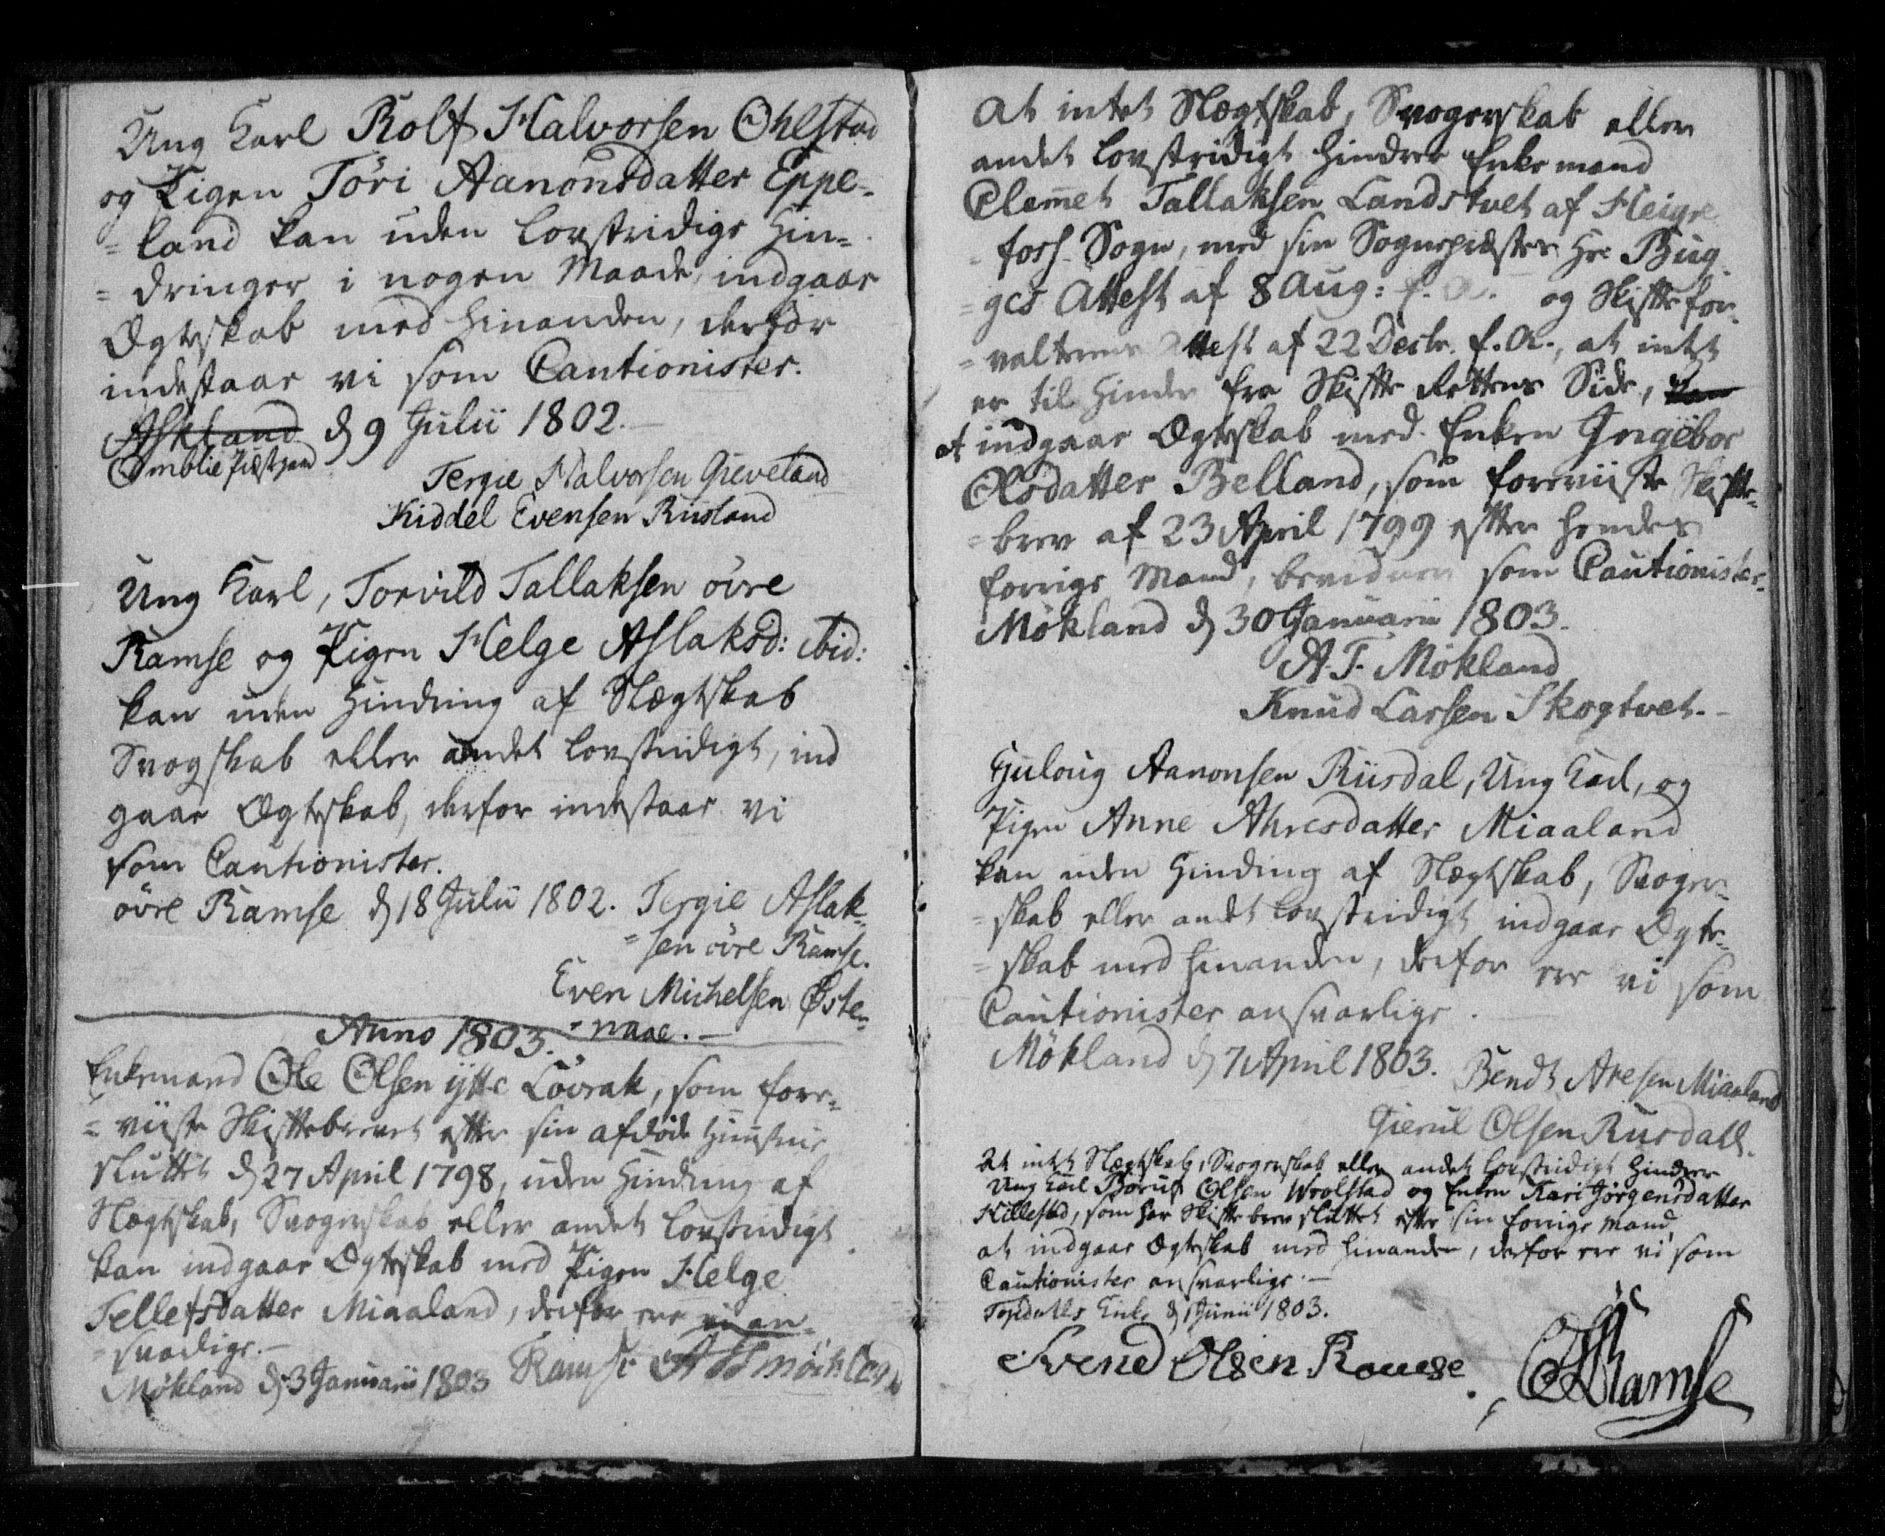 Ung Karl Rolf Halvorsen Ohlstad
og Pigen Töri Aanonsdatter Eppe-
= land kan uden lovstridige Hin-
= dringer i nogen Maade, indgaae
Ægteskab med hinanden, derfor
indestaar vi som Cautionister.
Askland d 9 Julii 1802.
Omblie Præstgaard
Tergie Halvorsen Greveland
Kiddel Evensen Risland
Ung Karl, Torvild Tallaksen övre
Ramse og Pigen Helge Aslaksd: ibid:
kan uden Hindring af Slægtskab
Svogskab eller andet lovstridigt, ind
gaae Ægteskab, derfor indestaar vi
som Cautionister.
övre Ramse d 18 Julii 1802. Tergie Aslak-
= sen övre Ramse.
Even Michelsen Øste-
= naae.
Anno 1803.
Enkemand Ole Olsen ytte Lövrak, som fore-
= viiste Skiftebrevet efter sin afdöde Hustrue
sluttet d 27 April 1798, uden Hindring af
Slægtskab, Svogerskab eller andet lovstridigt
kan indgaae Ægteskab med Pigen Helge
Tellefsdatter Miaaland, derfor ere vi an-
= svarlige.
Møkland d 3 Januarii 1803 Ramse
At intet Slægtskab, Svogerskab eller
andet lovstridigt hindrer Enkemand
Clemet Tallaksen Landstvet af Heigre
foss Sogn, med sin Sognepræstes Hr. Bug-
= ges Attest af 8 Aug: f. A. og Skiftefor-
= valterens Attest af 22 Decbr. f. A., at intet
er til Hinder fra Skifte Rettens Side,
at indgaae Ægteskab med Enken Ingebor
Olsdatter Belland, som foreviiste Skifte-
= brev af 23 April 1799 efter hendes
forrige Mand, bevidner som Cautionister
Møkland d 30 Januarii 1803.
A. T. Mökland
Knud Larsen Skogtvet.
Guloug Aanonsen Riisdal, Ung Karl, og
Pigen Anne Ahresdatter Miaaland
kan uden Hindring af Slægtskab, Svoger-
= skab eller andet lovstridigt indgaae Ægte-
= skab med hinanden, derfor ere vi som
Cautionister ansvarlige.
Møkland d 7 April 1803. Bendt Aresen Miaaland
Gierul Olsen Rusdall.
At intet Slægtskab, Svogerskab eller andet lovstridigt hindrer
Ung Karl Börul Olsen Wrolstad og Enken Kari Jörgensdatter
Hillestad, som har Skiftebrev sluttet efter sin forrige Mand,
at indgaae Ægteskab med hinanden, derfor ere vi som
Cautionister ansvarlige.
d 1 Junii 1803.
Svend Olsen Ramse
Ramse